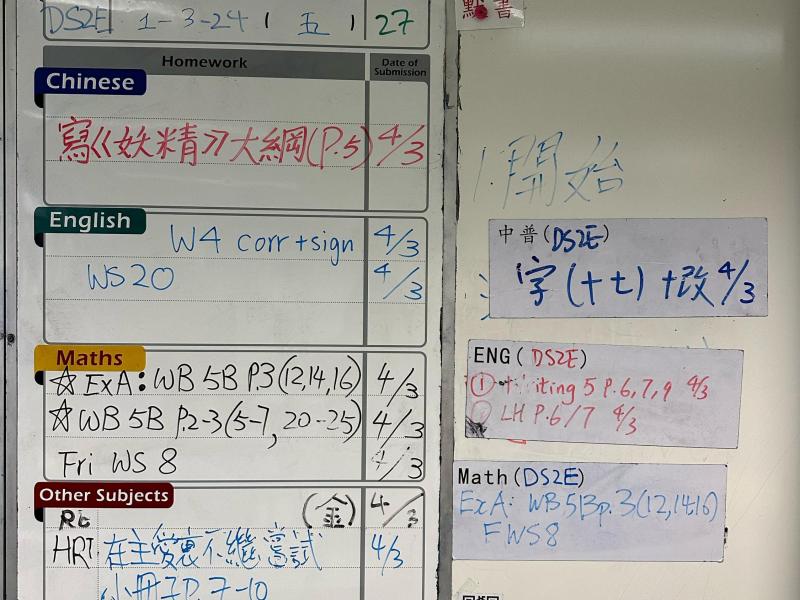 DS2E 1-3-24 ( 五 ) 27
Homework Date of Submission
Chinese
寫《妖精》大綱(P.5) 4/3
English
W4 corr+sign 4/3
WS20 4/3
Maths
☆ ExA: WB 5B P.3(12,14,16) 4/3
☆ WB 5B P.2-3(5-7, 20-25) 4/3
Fri WS 8 4/3
Other Subjects
RE (金) 4/3
HRT 在主愛裏不繼嘗試 4/3
小冊子P.7-10
點書
開始
中普(DS2E)
字(十七)+改 4/3
ENG(DS2E)
① Writing 5 P.6,7,9 4/3
② LH P.6/7 4/3
Math(DS2E)
ExA: WB5Bp.3(12,14,16)
FWS8